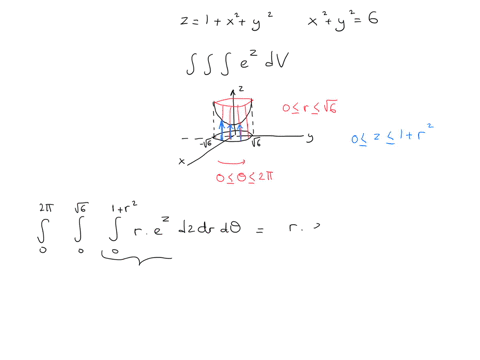 z = 1 + x² + y²    x² + y² = 6
∫∫∫ e^z dV
z
0 ≤ r ≤ √6
-√6    √6    y
x
0 ≤ z ≤ 1 + r²
0 ≤ θ ≤ 2π
∫₀^{2π} ∫₀^{√6} ∫₀^{1+r²} r · e^z dz dr dθ = r ·